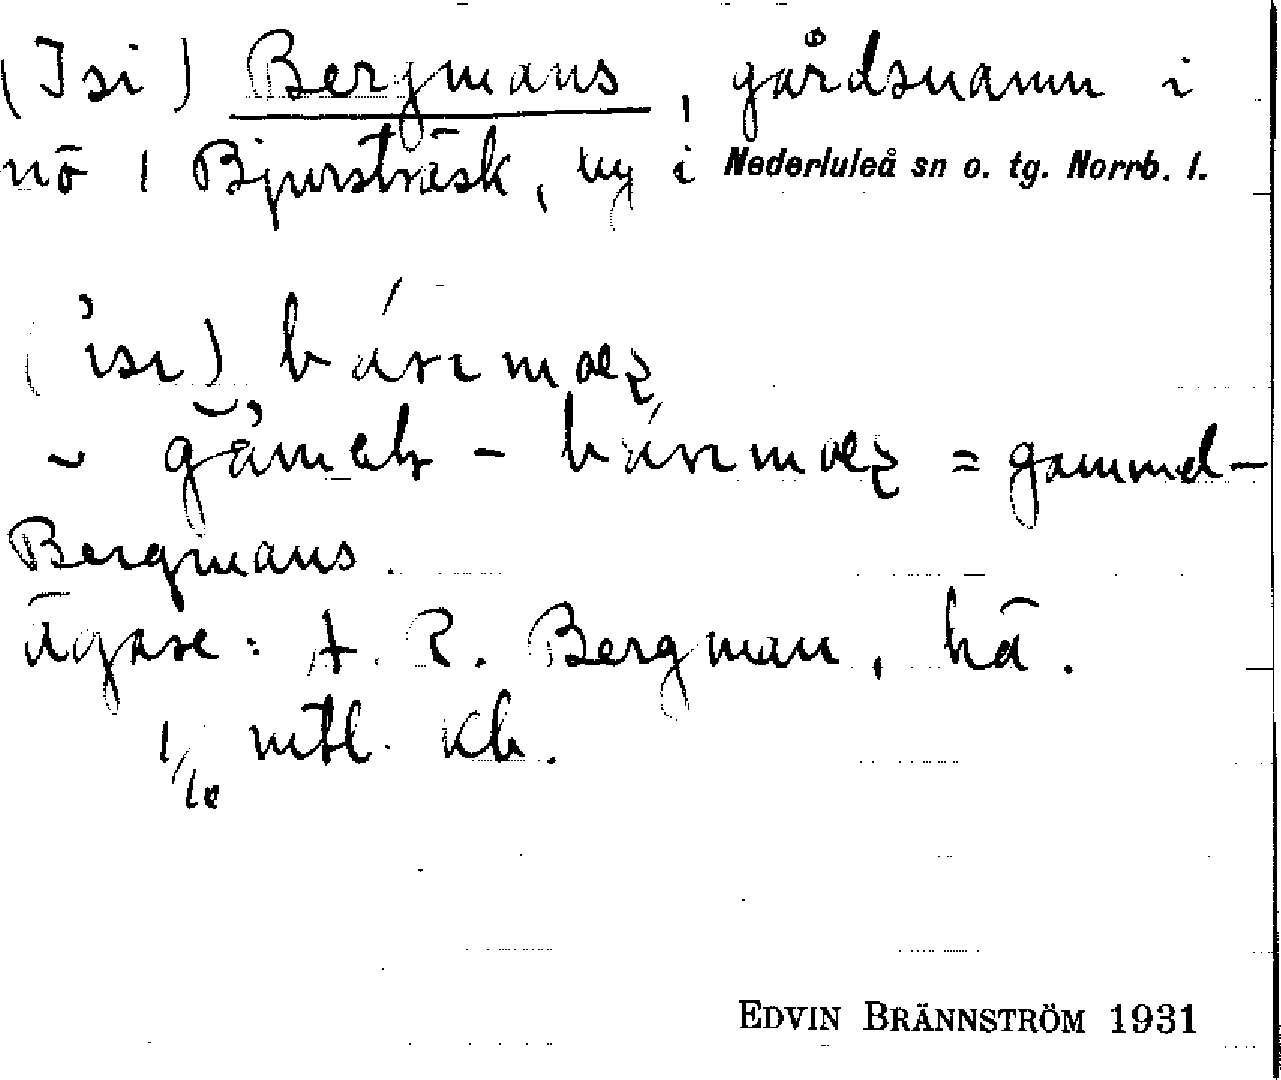 (Isi) Bergmans, gårdsnamn i
nö 1 Bjursträsk, by i Nederluleå sn o. tg. Norrb. l.
(isi)
= gammel-
Bergmans.
Ägare: A. R. Bergman, hä.
mtl. kb.
EDVIN BRÄNNSTRÖM 1931